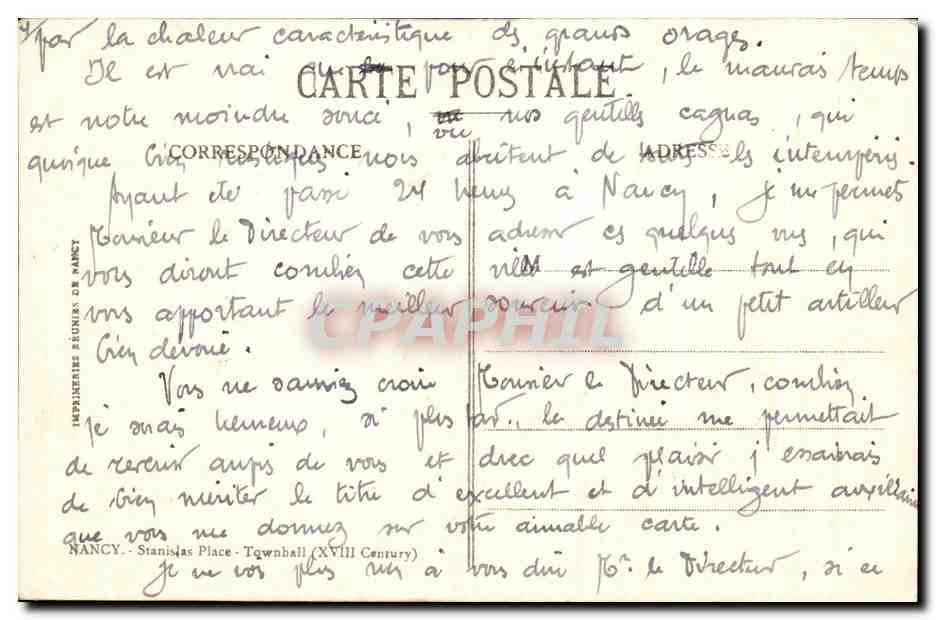 4/ par la chaleur caractéristique des grands orages.
Il est vrai que pour l'instant, le mauvais temps
CARTE POSTALE
est notre moindre souci, vu nos gentilles cagnas, qui
CORRESPONDANCE
ADRESSE
quoique bien rustiques nous abritent de tous les intempéris.
Ayant été passé 24 heures à Nancy, je me permets
Monsieur le Directeur de vous adresser ces quelques vues, qui
vous diront combien cette ville est gentille tout en
vous apportant le meilleur souvenir d'un petit artilleur
CPAPHIL
bien dévoué.
Vous ne sauriez croire Monsieur le Directeur, combien
je serais heureux, si plus tard, la destinée me permettait
de revenir auprès de vous et avec quel plaisir j'essaierais
de bien mériter le titre d'excellent et d'intelligent auxiliaire
que vous me donnez sur votre aimable carte.
NANCY. - Stanislas Place - Townhall (XVIII Century)
Je ne vois plus rien à vous dire Mr. le Directeur, si ce
IMPRIMERIES RÉUNIES DE NANCY